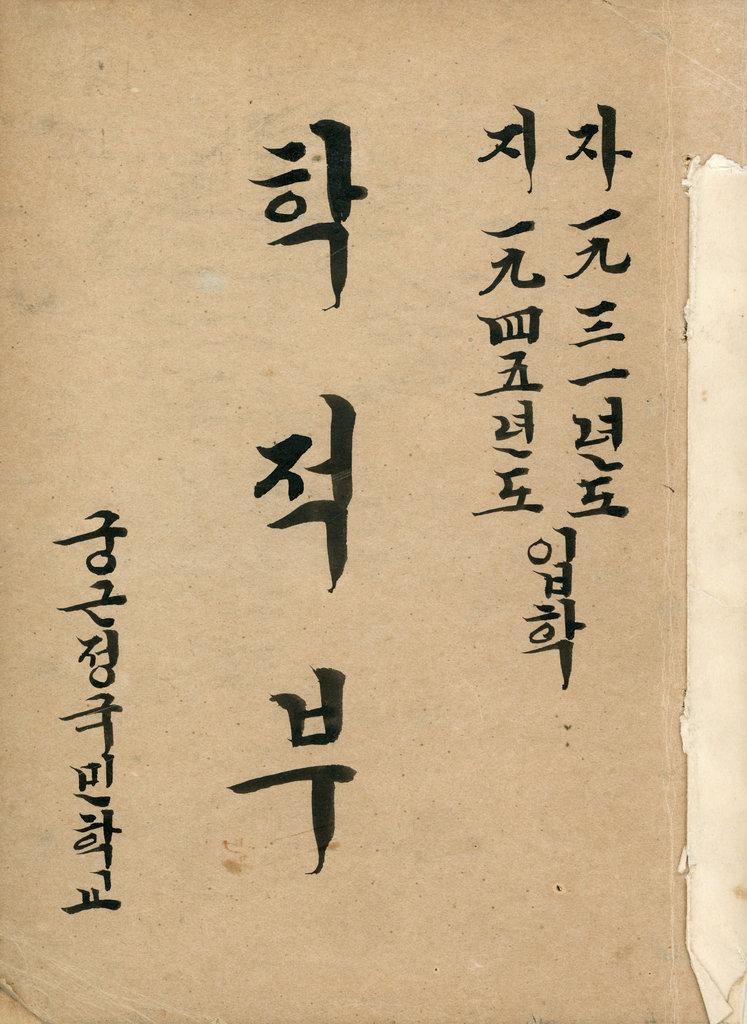 자 一九三一년도
지 一九四五년도
입학
학적부
궁근정국민학교